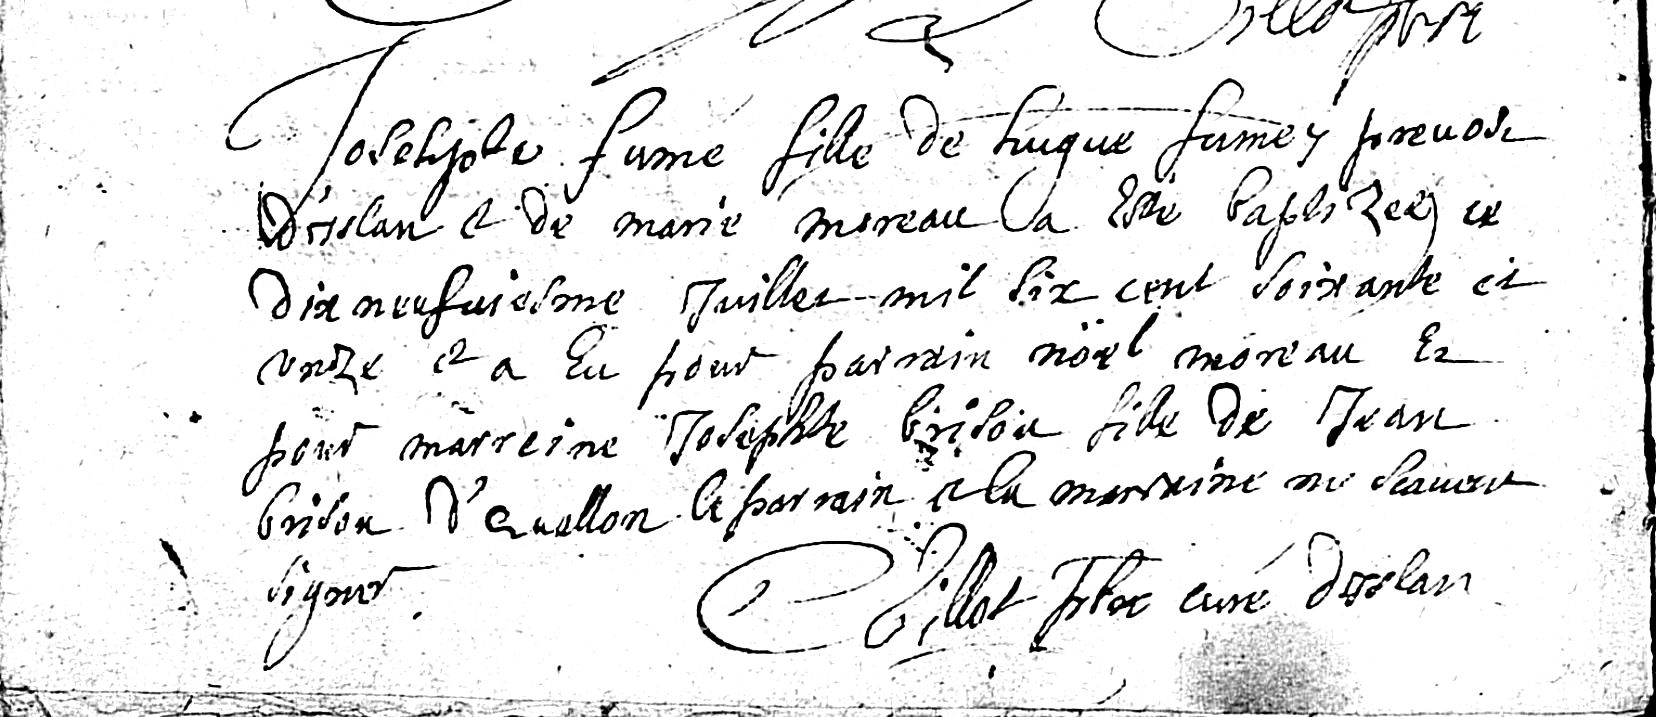 Josephte fumé fille de hugue fumey prevost
d'isslan et de marie moreau a Esté baptizee ce
dix neufuiesme Juillet mil six cent soixante et
unze et a Eu pour parrain noël moreau Et
pour marreine Josephte brisou fille de Jean
brisou d'avallon le parrain et la marraine ne scauent
signer.
pbre curé d'isslan